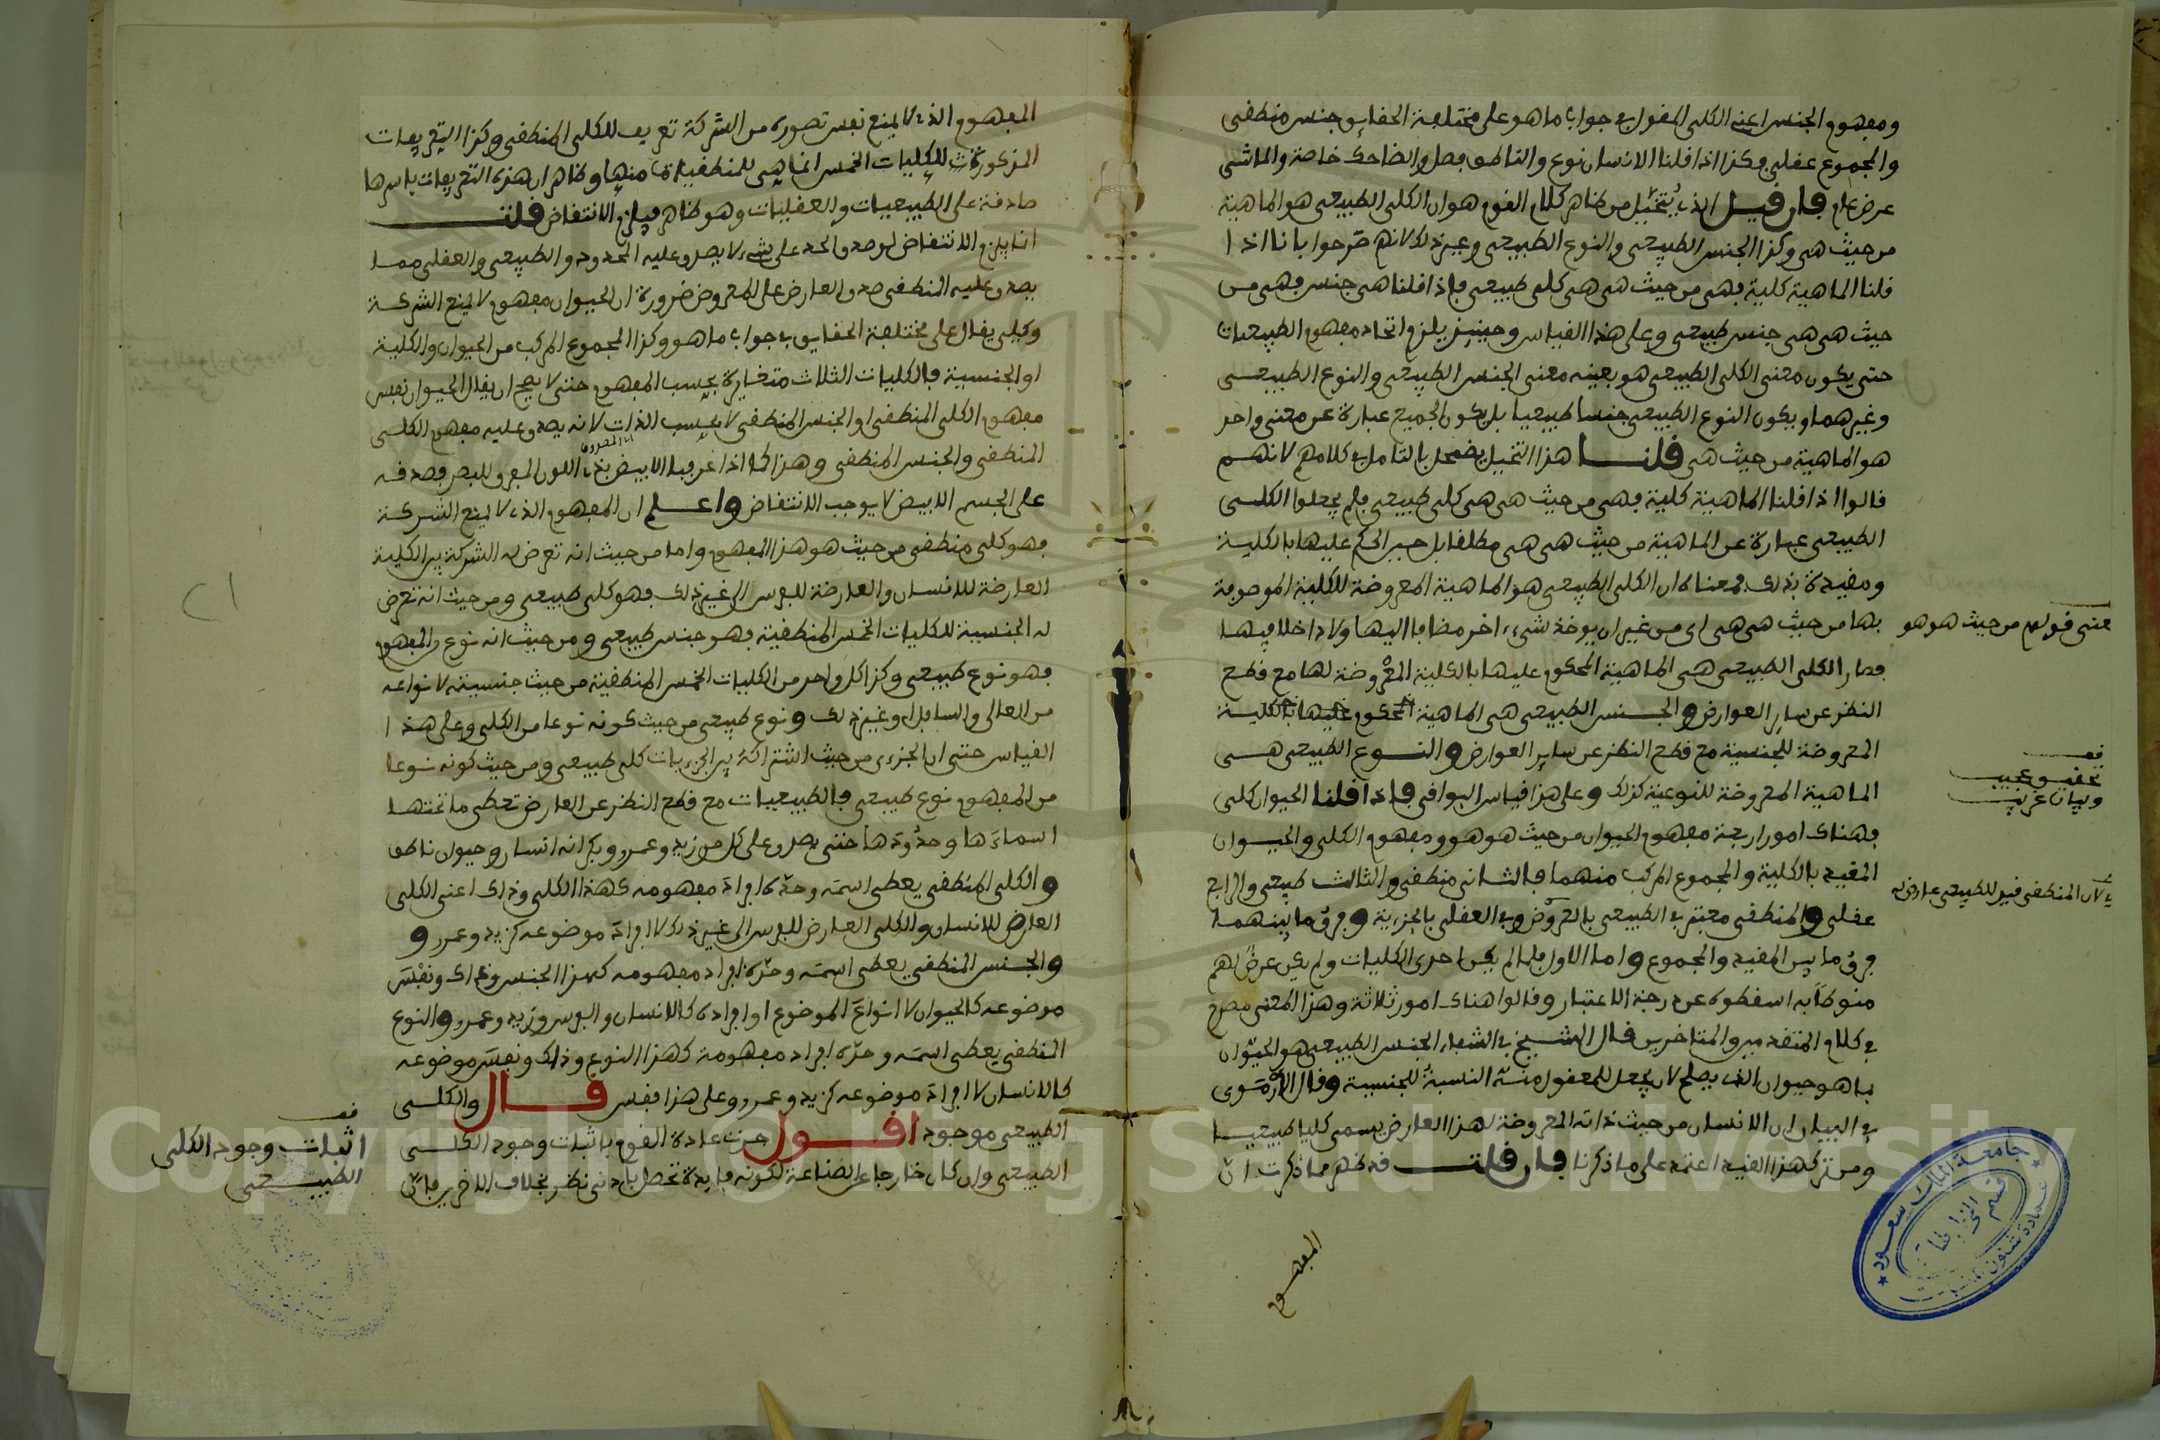 ومفهوم الجنس اعني الكلي المقول في جواب ما هو على مختلفة الحقايق جنس منطقي
والمجموع عقلي وكذا اذا قلنا الانسان نوع والناطق فصل والضاحك خاصة والماشي
عرض عام فان قيل الذي يُتخيّل من ظاهر كلام القوم هو ان الكلي الطبيعي هو الماهية
من حيث هي وكذا الجنس الطبيعي والنوع الطبيعي وغير ذلك لانهم صرحوا بانا اذا
قلنا الماهية كلية فهي من حيث هي هي كلي طبيعي فاذا قلنا هي جنس فهي من
حيث هي هي جنس طبيعي وعلى هذا القياس وحينيذ يلزم اتحاد مفهوم الطبيعيات
حتى يكون معنى الكلي الطبيعي هو بعينه معنى الجنس الطبيعي والنوع الطبيعي
وغيرهما ويكون النوع الطبيعي جنسا طبيعيا بل يكون الجميع عبارة عن معنى واحد
هو الماهية من حيث هي قلنا هذا التخيل يضمحل بالتامل في كلامهم لانهم
قالوا اذا قلنا الماهية كلية فهي من حيث هي هي كلي طبيعي فلم يجعلوا الكلي
الطبيعي عبارة عن الماهية من حيث هي هي مطلقا بل حين الحكم عليها بالكلية
ومقيدة بذلك فمعناه ان الكلي الطبيعي هو الماهية المعروضة للكلية الموصوفة
بها من حيث هي هي اى من غير ان يوخذ شيء اخر مضافا اليها ولا داخلا فيها
فصار الكلي الطبيعي هي الماهية المحكوم عليها بالكلية المعْروضة لها مع قطع
النظر عن ساير العوارض والجنس الطبيعي هي الماهية المحكوم عليها بالكلية
المعروضة للجنسية مع قطع النظر عن ساير العوارض والنوع الطبيعي هي
الماهية المعروضة للنوعية كذلك وعلى هذا قياس البواقي فاذا قلنا الحيوان كلي
فهناك امور اربعة مفهوم الحيوان من حيث هو هو ومفهوم الكلي والحيوان
المقيد بالكلية والمجموع المركب منهما فالثاني منطقي والثالث طبيعي والرابع
عقلي والمنطقي معتبر في الطبيعي بالعرُوض وفي العقلي بالجزئية وفرق ما بينهما
فرق ما بين المقيد والمجموع واما الاول فلما لم يكن احدى الكليات ولم يكن غرض لهم
منوطاً به اسقطوه عن درجة الاعتبار وقالوا هناك امور ثلاثة وهذا المعنى مصرح
في كلام المتقدمين والمتاخرين قال الشيخ في الشفاء الجنس الطبيعي هو الحيوان
بما هو حيوان الذي يصلح لان يجعل للمعقول منه النسبة للجنسية وقال الارموى
في البيان ان الانسان من حيث ذاته المعروضة لهذا العارض يسمى كليا طبيعيا
ومن ترك هذا القيد اعتمد على ما ذكرنا فان قلت قد ظهر مما ذكرت ان
المفهوم
معنى قولهم من حيث هو هو
قف
تحقيق عجيب
وبيان غريب
لان المنطقي قيد للطبيعي عارض له
المفهوم الذي لا يمنع نفس تصوره من الشركة تعريف للكلي المنطقي وكذا التعريفات
المذكورة للكليات الخمس انما هي للمنطقيات منها وظاهر ان هذه التعريفات باسرها
صادقة على الطبيعيات والعقليات وهو ظاهر فيلزم الانتقاض قلت
انما يلزم الانتقاض لو صدق الحد على شيء لا يصدق عليه المحدود والطبيعي والعقلي مما
يصدق عليه المنطقي صدق العارض على المعروض ضرورة ان الحيوان مفهوم لا يمنع الشركة
وكلي يقال على مختلفة الحقايق في جواب ما هو وكذا المجموع المركب من الحيوان والكلية
او الجنسية فالكليات الثلاث متغايرة بحسب المفهوم حتى لا يصح ان يقال الحيوان نفس
مفهوم الكلي المنطقي او الجنس المنطقي لا بحسب الذات لانه يصدق عليه مفهوم الكلي
المنطقي والجنس المنطقي وهذا كما اذا عرفنا الابيض بذي اللون المفرق للبصر فصدقه
على الجسم الابيض لا يوجب الانتقاض واعلم ان المفهوم الذي لا يمنع الشركة
فهو كلي منطقي من حيث هو هذا المفهوم واما من حيث انه تعرض له الشركة بين الكلية
العارضة للانسان والعارضة للفرس الى غير ذلك فهو كلي طبيعي ومن حيث انه تعرض
له الجنسية للكليات الخمس المنطقية فهو جنس طبيعي ومن حيث انه نوع من المفهوم
فهو نوع طبيعي وكذا كل واحد من الكليات الخمس المنطقية من حيث جنسيته لانواعه
من العالي والسافل او غير ذلك ونوع طبيعي من حيث كونه نوعا من الكلي وعلى هذا
القياس حتى ان الجزءي من حيث اشتراكه بين الجزءيات كلي طبيعي ومن حيث كونه نوعا
من المفهوم نوع طبيعي فالطبيعيات مع قطع النظر عن العارض تعطي ما تحتها
اسماءَها وحدُودَها حتى يصدق على كل من زيد وعمرو وبكر انه انسان وحيوان ناطق
والكلي المنطقي يعطي اسمَه وحدّه افرادَ مفهومه كهذا الكلي وذاك اعني الكلي
العارض للانسان والكلي العارض للفرس الى غير ذلك لا افرادَ موضوعه كزيد وعمرو و
والجنس المنطقي يعطي اسمَه وحدّه افراد مفهومه كهذا الجنس وذاك ونفْسَ
موضوعه كالحيوان لا انواعَ الموضوع او افراده كالانسان والفرس وزيد وعمرو والنوع
المنطقي يعطي اسمَه وحدّه افراد مفهومه كهذا النوع وذاك ونفسَ موضوعه
كالانسان لا افرادَ موضوعه كزيد وعمرو وعلى هذا فقس قال والكلي
الطبيعي موجود اقول جرت عادة القوم باثبات وجود الكلي
الطبيعي وان كان خارجا عن الصناعة لكونه فايدة تحصل بادنى نظر بخلاف الاخرين فانّ
قف
اثبات وجود الكلي
الطبيعي
جامعة الملك سعود
قسم المخطوطات
Copyright © King Saud University